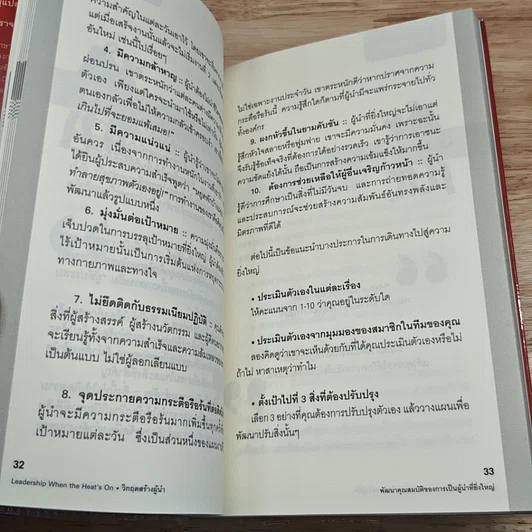 ความสำคัญในแต่ละวันเอาไว้ โดยเขาจะ
แต่เมื่อเสร็จงานนั้นแล้วจะไม่เริ่มงานที่
อันใหม่ เช่นนี้ไปเรื่อยๆ
4. มีความกล้าหาญ :: ผู้นำ
ผ่อนปรน เขาตระหนักว่าแต่ละคน
ตัวเอง เพียงแต่ใครจะนำมาใช้หรือไม่
ตนเองกลัวเพื่อไม่ให้ความกลัวเข้าครอบงำ
เกินไปที่จะยอมแพ้เสมอ!"
5. มีความแน่วแน่ :: ผู้นำรู้ว่า
อันควร เนื่องจากการทำงานหนักใน
ได้ยินผู้ประสบความสำเร็จพูดว่า
ทำลายสุขภาพตัวเองอยู่!" การทำงานของเขา
พัฒนาแล้วรูปแบบหนึ่ง
6. มุ่งมั่นต่อเป้าหมาย :: ความมุ่งมั่น
เจ็บปวดในการบรรลุเป้าหมายที่ยิ่งใหญ่ ผู้นำ
ไร้เป้าหมายนั้นเป็นการเริ่มต้นแห่งการหยุด
ทางกายภาพและทางใจ
7. ไม่ยึดติดกับธรรมเนียมปฏิบัติ ::
สิ่งที่ผู้สร้างสรรค์ ผู้สร้างนวัตกรรม และผู้
จะเรียนรู้ทั้งจากความสำเร็จและความล้มเหลว
เป็นต้นแบบ ไม่ใช่ผู้ลอกเลียนแบบ
8. จุดประกายความกระตือรือร้น
ผู้นำจะมีความกระตือรือร้นมากเพิ่มขึ้นทุกครั้ง
เป้าหมายแต่ละวัน ซึ่งเป็นส่วนหนึ่งของแผนงาน
32
Leadership When the Heat's On • วิกฤตสร้างผู้นำ
ไม่ใช่เฉพาะงานประจำวัน เขาตระหนักดีว่าหากปราศจากความ
กระตือรือร้นนี้ ความรู้สึกใดก็ตามที่ผู้นำมีจะแพร่กระจายไปทั่ว
ทั้งองค์กร
9. ผงกหัวขึ้นในยามคับขัน :: ผู้นำที่ยิ่งใหญ่จะไม่เอาแต่
รู้สึกหัวใจสลายหรือฟูมฟาย เขาจะมีความมั่นคง เพราะฉะนั้น
จึงรับรู้ข้อเท็จจริงที่ต้องการได้อย่างรวดเร็ว เขารู้ว่าการเอาชนะ
ความขัดแย้งได้นั้น ถือเป็นการสร้างความเข้มแข็งให้มากขึ้น
10. ต้องการช่วยเหลือให้ผู้อื่นเจริญก้าวหน้า :: ผู้นำ
รู้ดีว่าการศึกษาเป็นสิ่งที่ไม่มีวันจบ และการถ่ายทอดความรู้
และประสบการณ์จะช่วยสร้างความสัมพันธ์อันทรงพลังและ
มิตรภาพที่ดีได้
ต่อไปนี้เป็นข้อแนะนำบางประการในการเดินทางไปสู่ความ
ยิ่งใหญ่
• ประเมินตัวเองในแต่ละเรื่อง
ให้คะแนนจาก 1-10 ว่าคุณอยู่ในระดับใด
• ประเมินตัวเองจากมุมมองของสมาชิกในทีมของคุณ
ลองคิดดูว่าเขาจะเห็นด้วยกับที่ได้คุณประเมินตัวเองหรือไม่
ถ้าไม่ หาสาเหตุว่าทำไม
• ตั้งเป้าไปที่ 3 สิ่งที่ต้องปรับปรุง
เลือก 3 อย่างที่คุณต้องการปรับปรุงตัวเอง แล้ววางแผนเพื่อ
พัฒนาปรับสิ่งนั้นๆ
33
พัฒนาคุณสมบัติของการเป็นผู้นำที่ยิ่งใหญ่